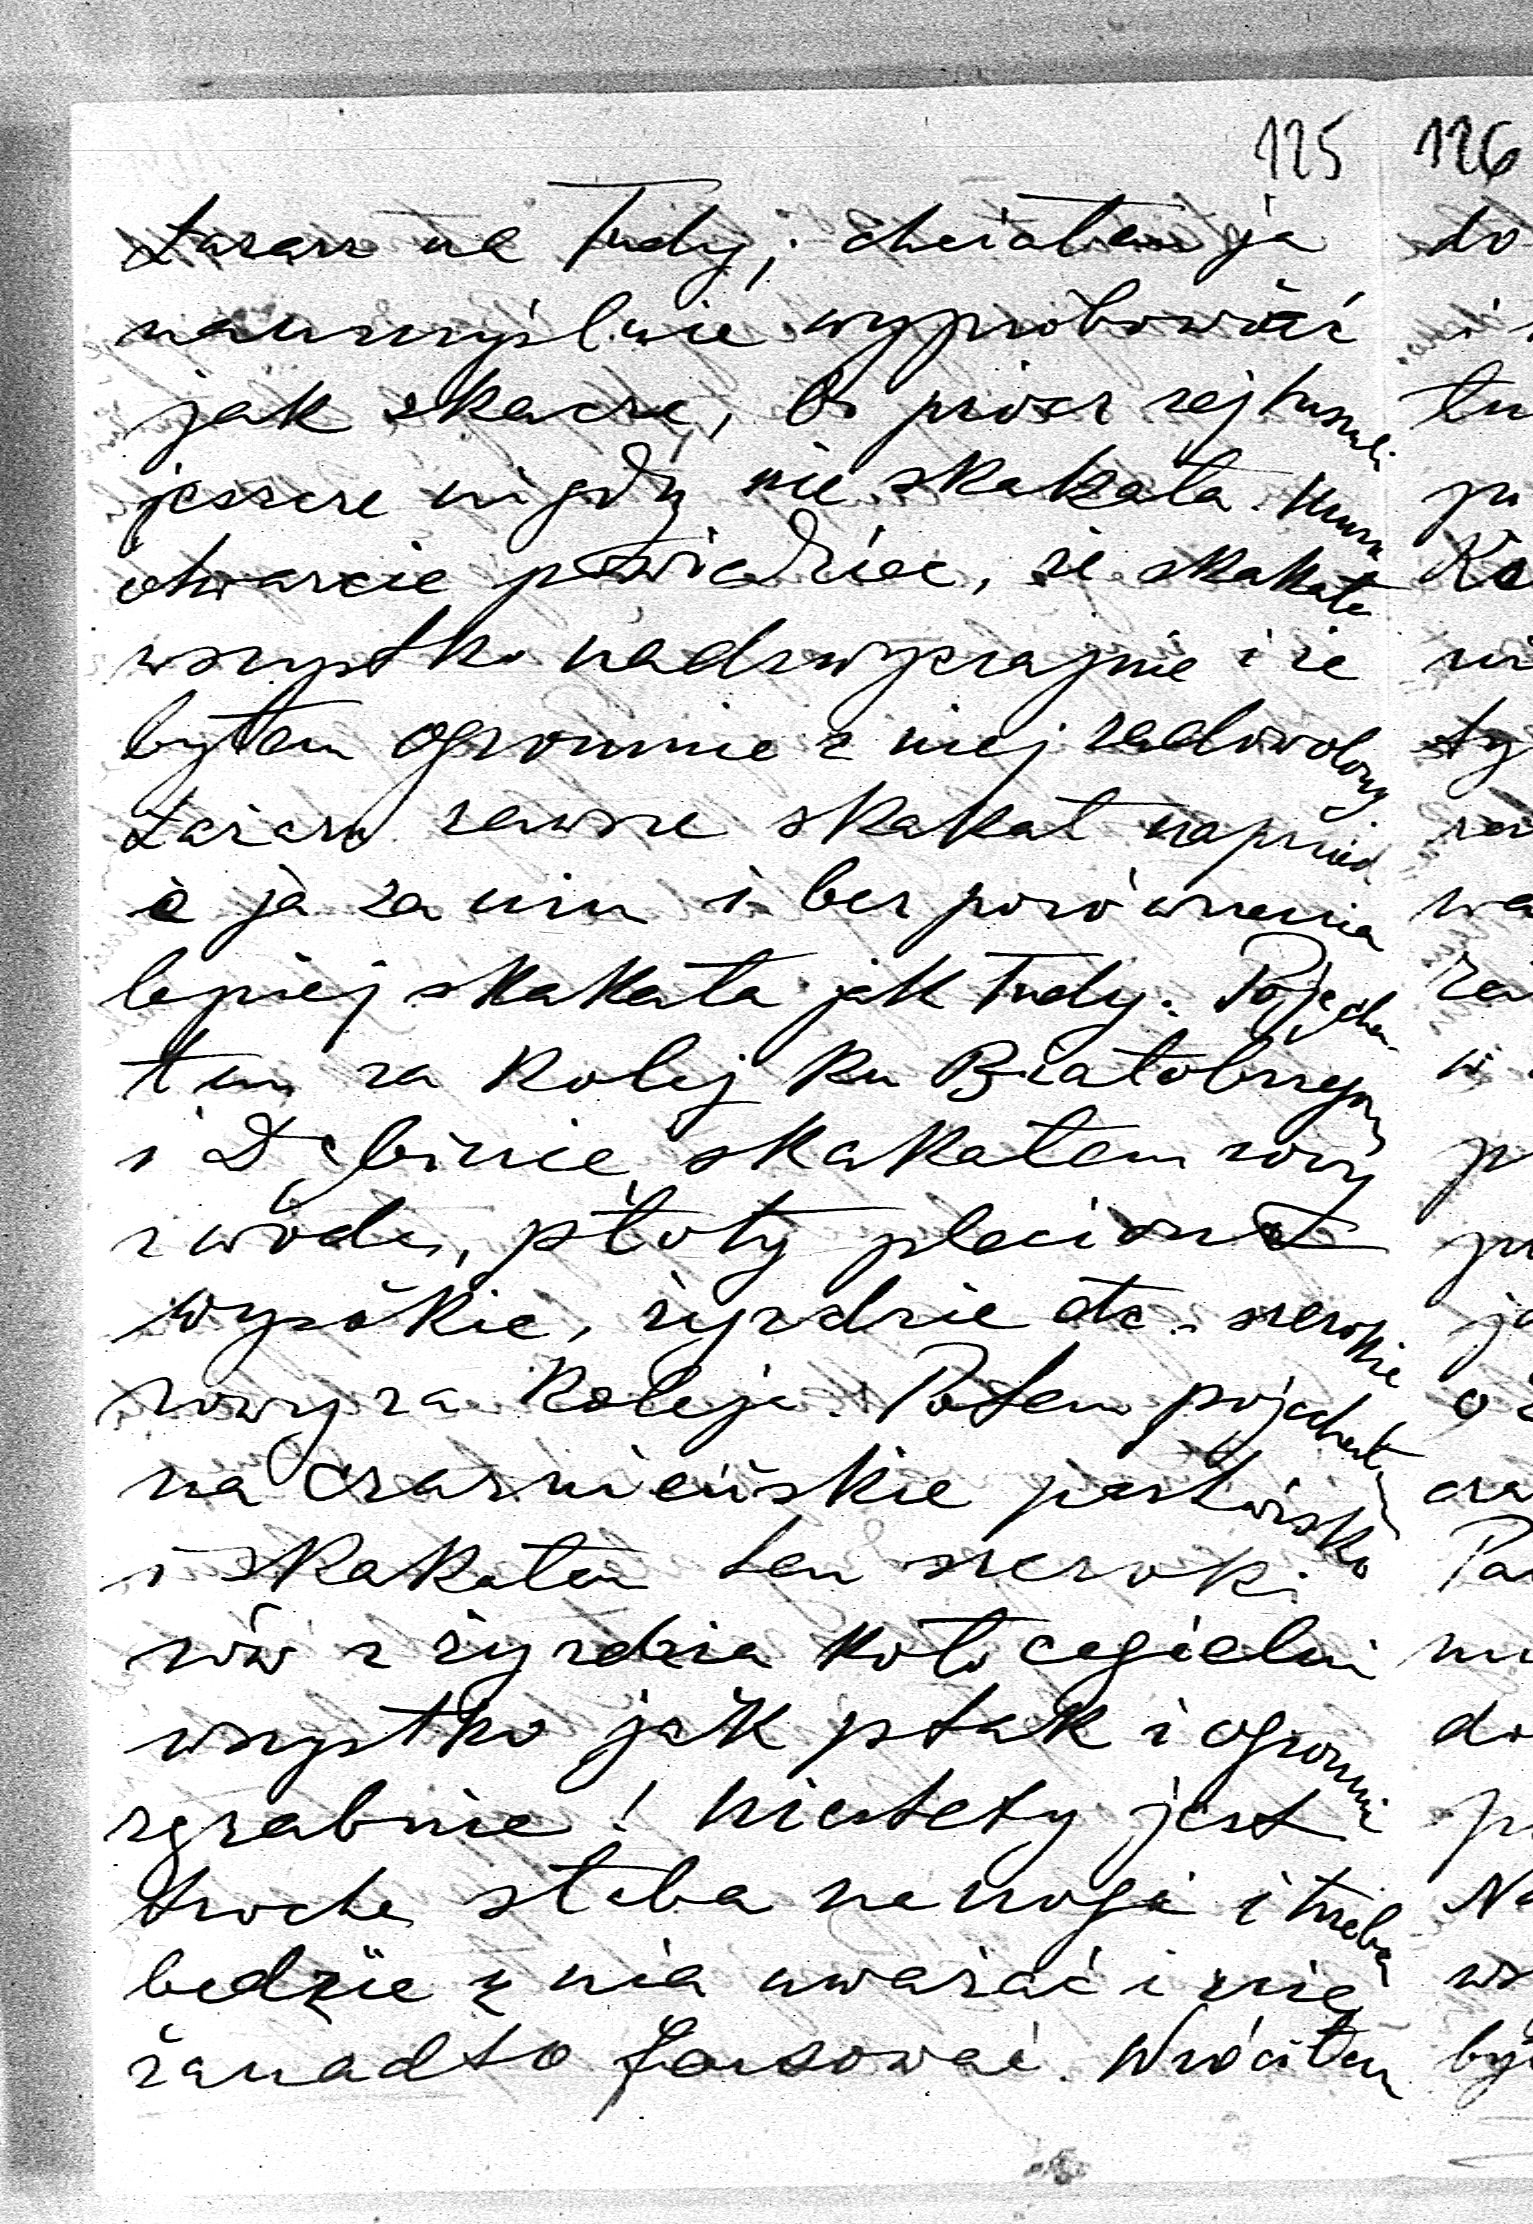 125 126
Łazarz na Tudy; chciałem ją
naumyślnie wypróbować
jak skacze, bo prócz rejtszuli
jeszcze nigdy nie skakała. Muszę
otwarcie powiedzieć, że skakała
wszystko nadzwyczajnie i że
byłem ogromnie z niej zadowolony
Łazarz zawsze skakał naprzód
a ja za nim i bez porównania
lepiej skakała jak Tudy. Pojecha-
łem za kolej ku Białobrzegom
i Dębinie, skakałem rowy
z wodą, płoty plecione
wysokie, żyrdzie etc. szerokie
rowy za koleją. Potem pojechał
na czarnieńskie pastwisko
i skakałem ten szeroki
rów z żyrdzią koło cegielni
wszystko jak ptak i ogromni
zgrabnie! Niestety jest
trochę słaba na nogi i trzeba
będzie z nią uważać i nie
zanadto forsować. Wróciłem
do
tu
Ko
ty
wa
w
o
Pa
do
Na